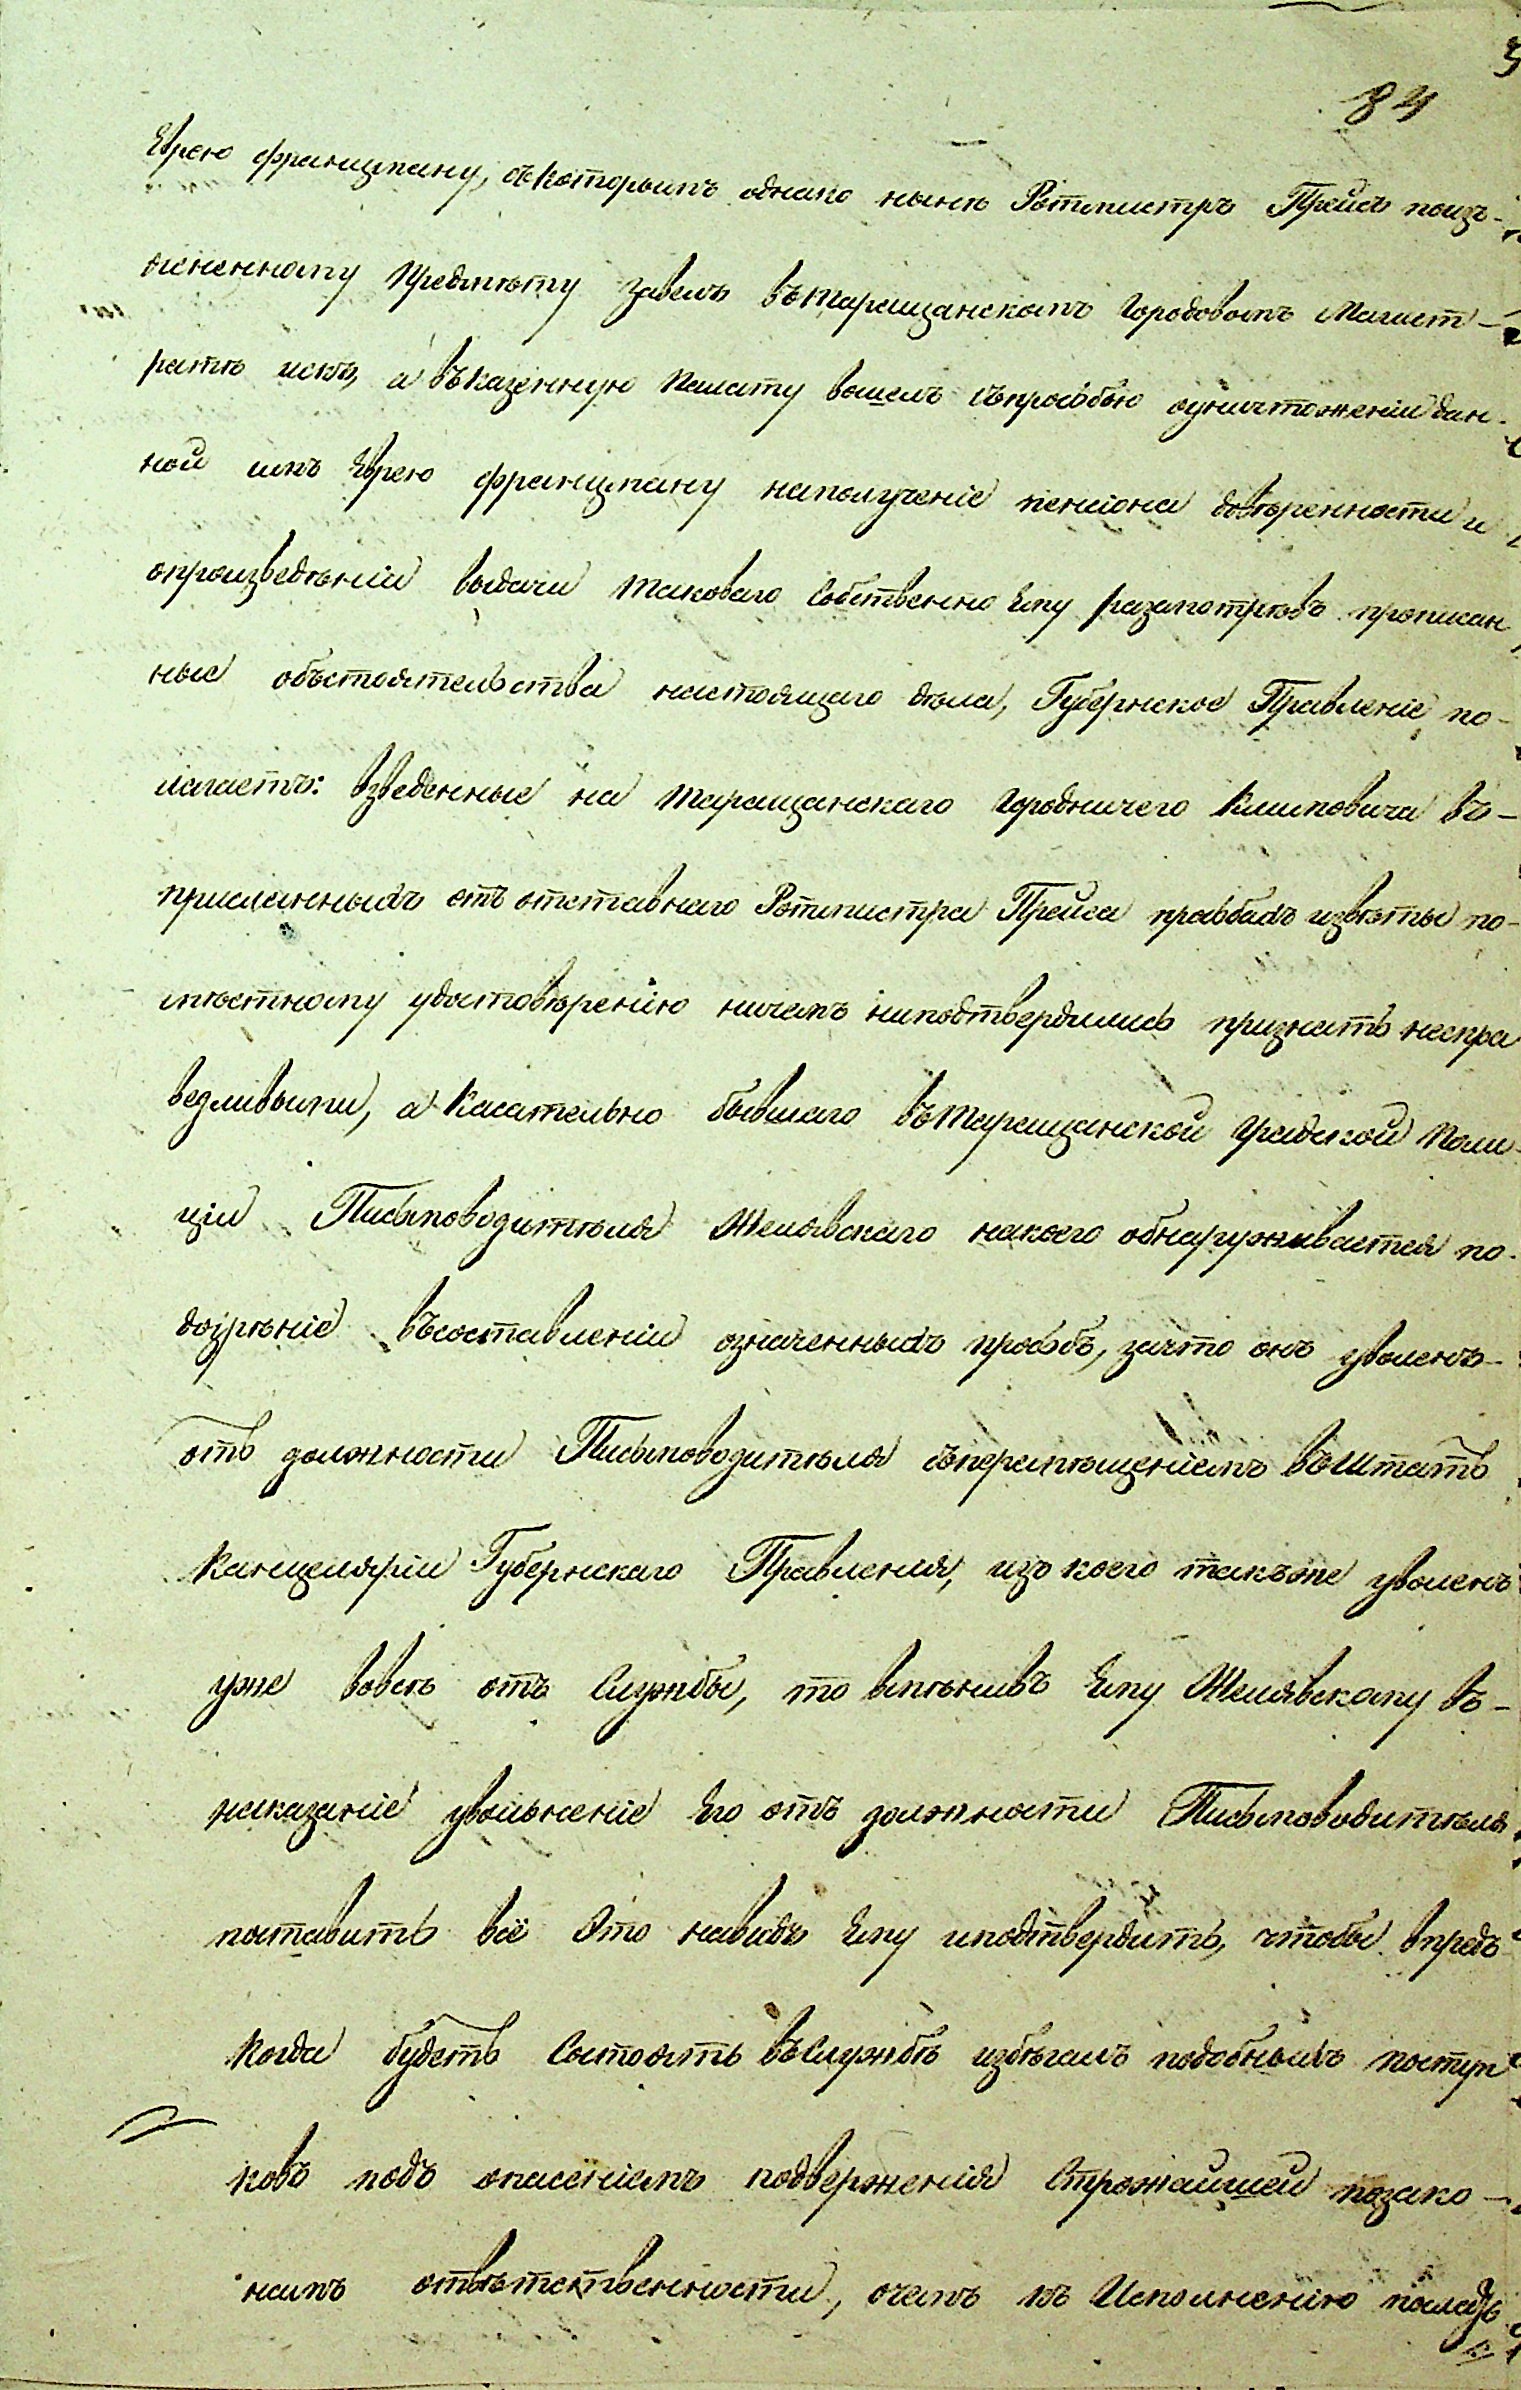 84
Еврею Францману, съ которымъ однако нынѣ Ротмистръ Прейсъ поизъ-
ясненному предмѣту завелъ въ Таращанскомъ Городовомъ Магист-
ратѣ искъ, а въ казенную Палату вошелъ съ прозбою оуничтоженіи дан-
ной имъ Еврею Францману на полученіе пенсіона довѣренности и
опроизведѣніи выдачи таковаго собственно Ему разсмотрѣвъ прописан
ные объстоятельства настоящаго дѣла, Губернское Правленіе по-
лагаетъ: взведенные на Таращанскаго Городничего Климовича въ-
присланныхъ отъ отставнаго Ротмистра Прейса прозбахъ извѣты по-
мѣстному удостовѣренію ничемъ неподтвердились признать неспра
ведливыми, а касательно бывшаго въ Таращанской Градской Поли-
ціи Письмоводителя Желявскаго накоего обнаруживается по-
дозрѣніе въ составленіи означенныхъ прозбъ, зачто онъ уволенъ-
отъ должности Письмоводителя съ перемѣщеніемъ въ Штатъ
Канцеляріи Губернскаго Правления, изъ коего такъже уволенъ
уже вовсѣ отъ Службы, то вмѣнивъ Ему Желявскому въ-
наказаніе увольненіе Его отъ должности Письмоводителя
поставить всё Это навидъ Ему иподтвердить, чтобы впредъ
когда будетъ Состоять въ Службѣ избѣгалъ подобныхъ поступ
ковъ подъ опасеніемъ подверженія Строжайшей позако-
намъ отвѣтственности, очемъ къ Исполненію